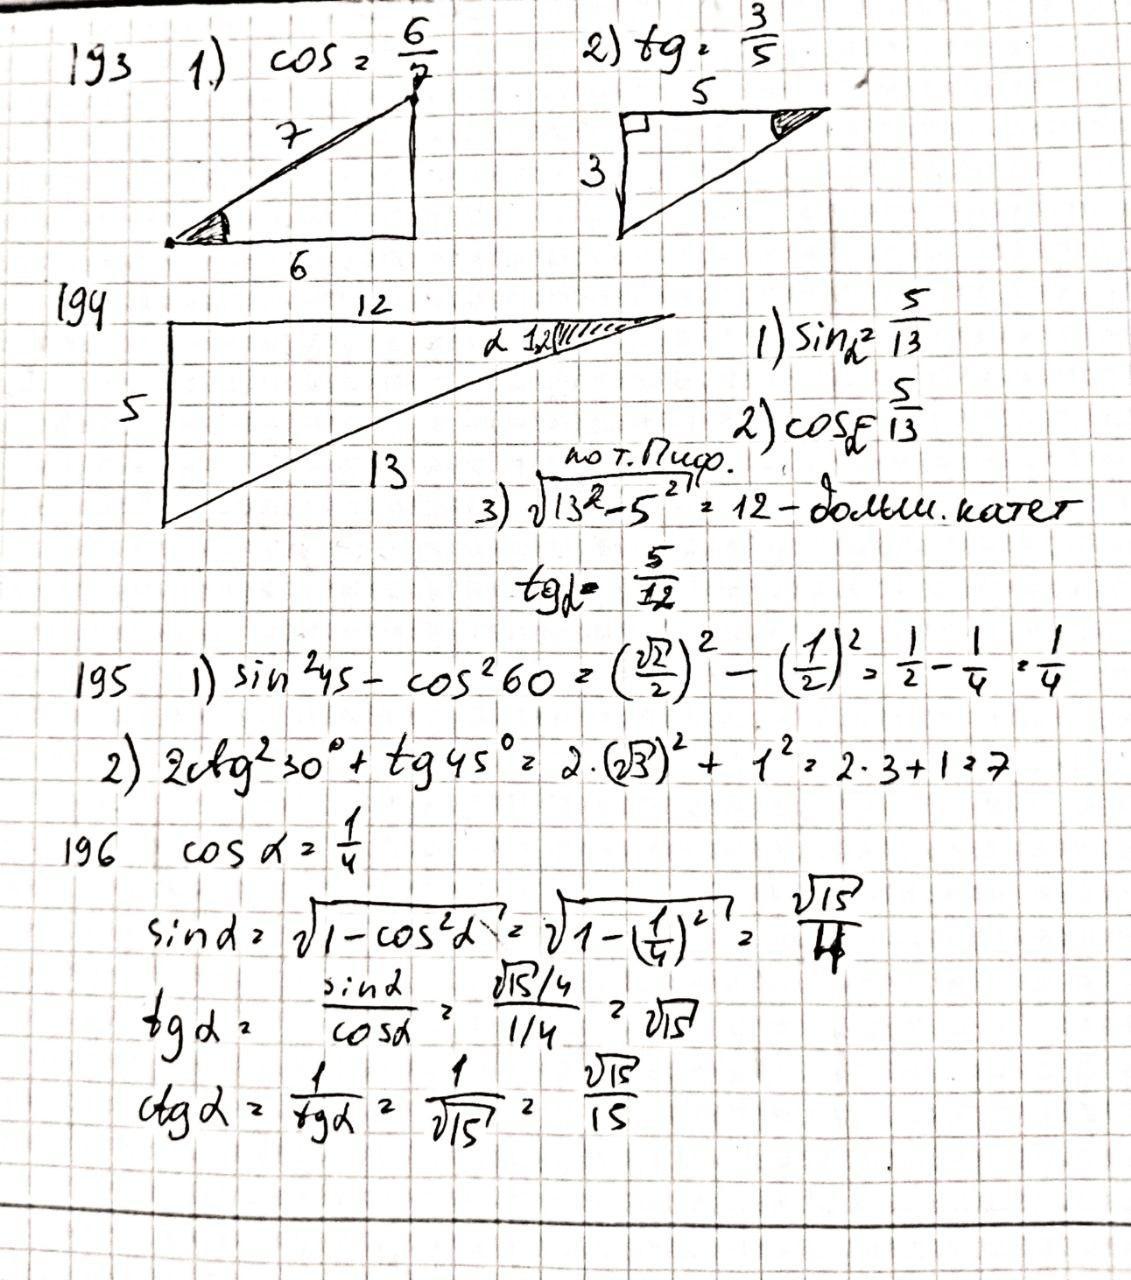 193 1.) cos = 6/7 2) tg = 3/5
7 5
3
6
194 12
α 12
5
13
1) sinα = 5/13
2) cosα = 5/13
по т. Пиф.
3) √(13² - 5²) = 12 - больш. катет
tgα = 5/12
195 1) sin²45 - cos²60 = (√2/2)² - (1/2)² = 1/2 - 1/4 = 1/4
2) 2ctg²30° + tg45° = 2·(√3)² + 1² = 2·3+1=7
196 cos α = 1/4
sinα = √(1-cos²α) = √(1-(1/4)²) = √15/4
tgα = sinα/cosα = (√15/4)/(1/4) = √15
ctgα = 1/tgα = 1/√15 = √15/15